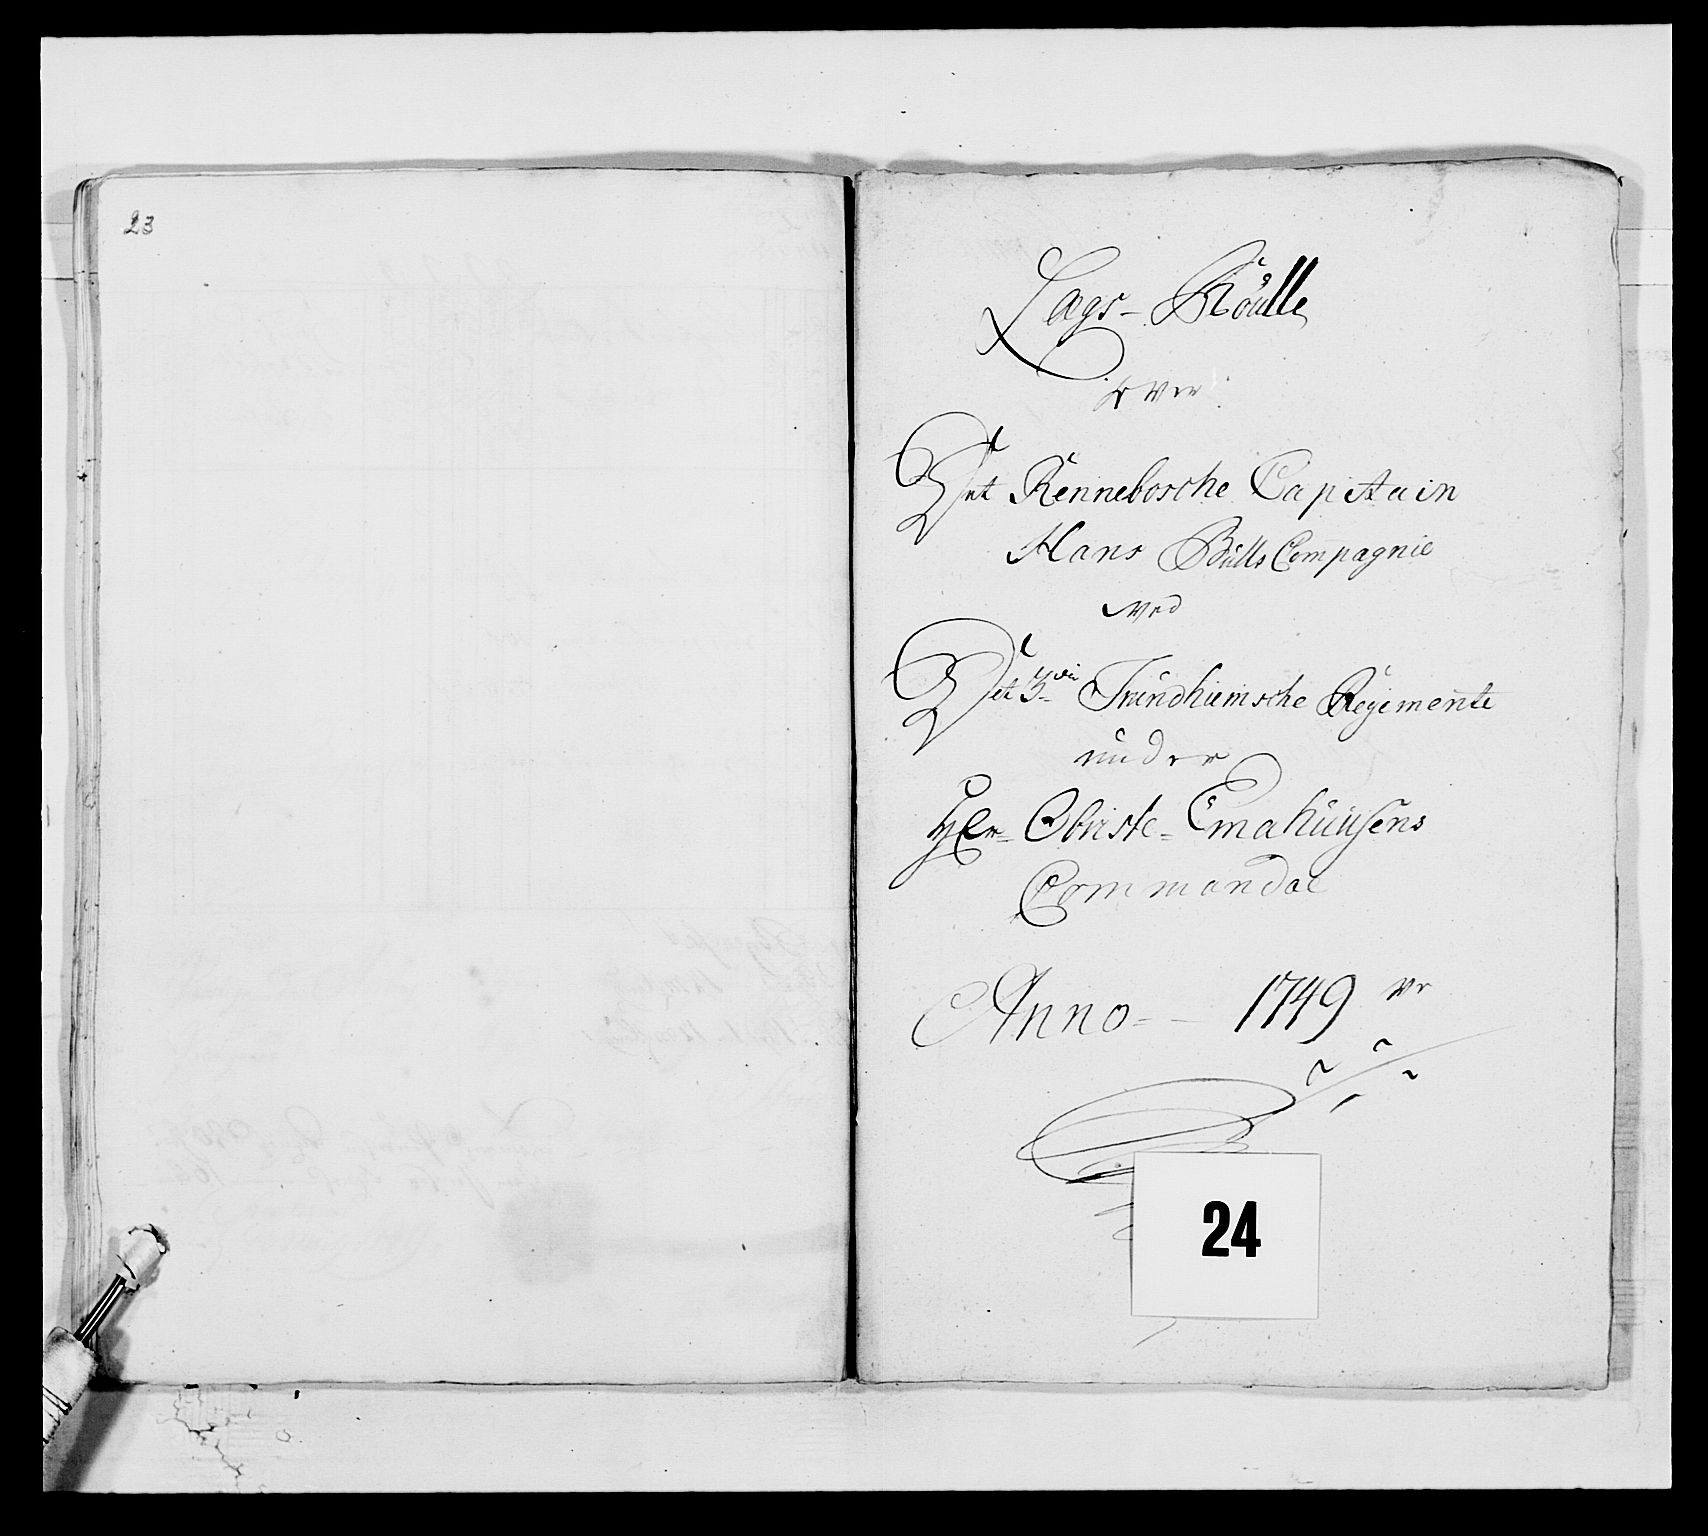 23
Lægs-Roulle
over
Det Rennebosche Capitain
Hans Bülls Compagnie
ved
Det 3die Trundhiemsche Regimente
under
HEr Obriste Emahüusens
Commando
Anno 1749
24